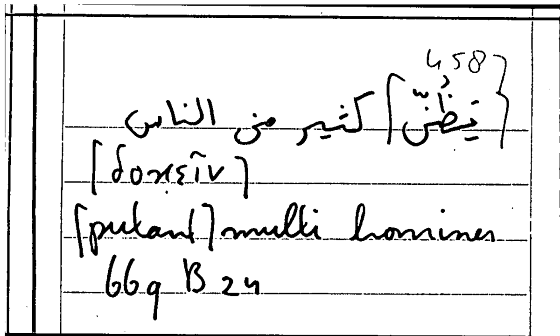 458
{يَظُنّ} كثير من الناس
[δοκεῖν]
[putant] multi homines
669 B 24